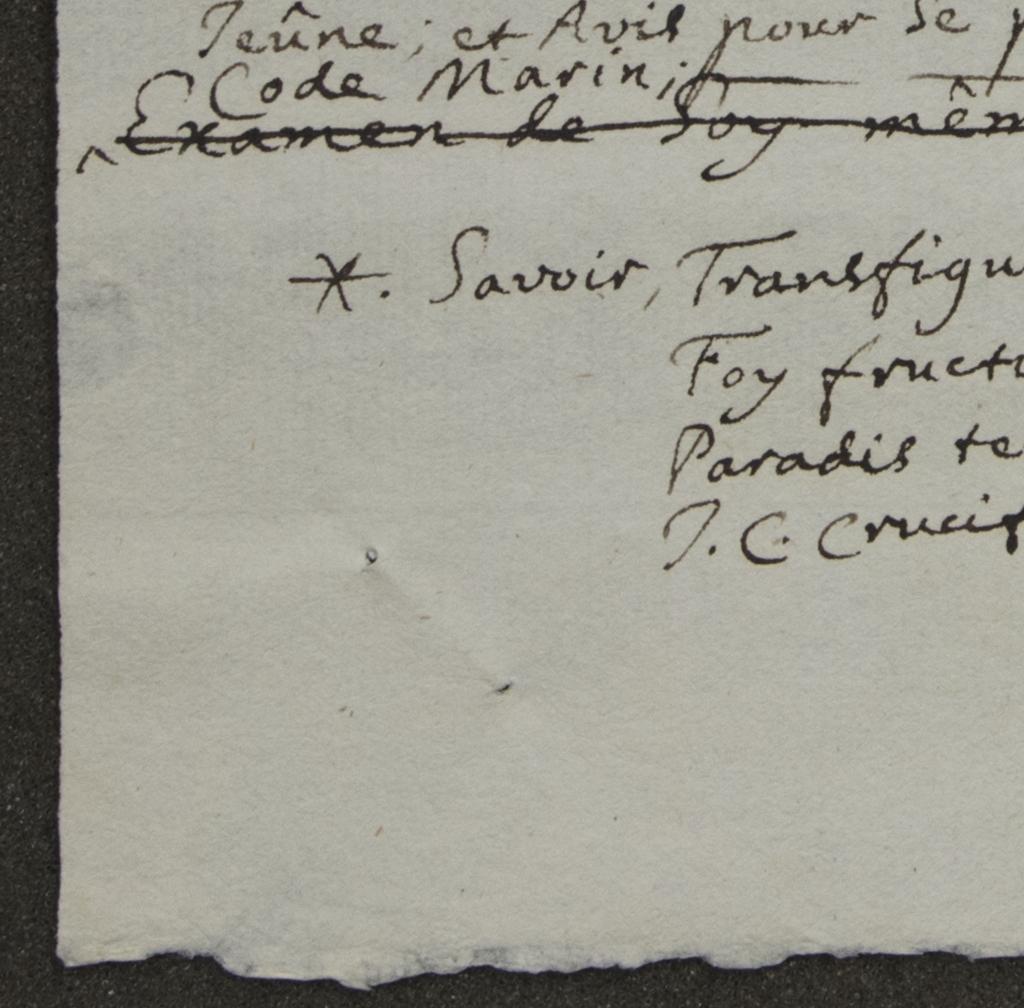 Jeûne; et Avis pour Se p
Code Marin;
^ Examen de Soy mêm
*. Savoir, Transfigu
Foy fructu
Paradis te
J. C. Crucif